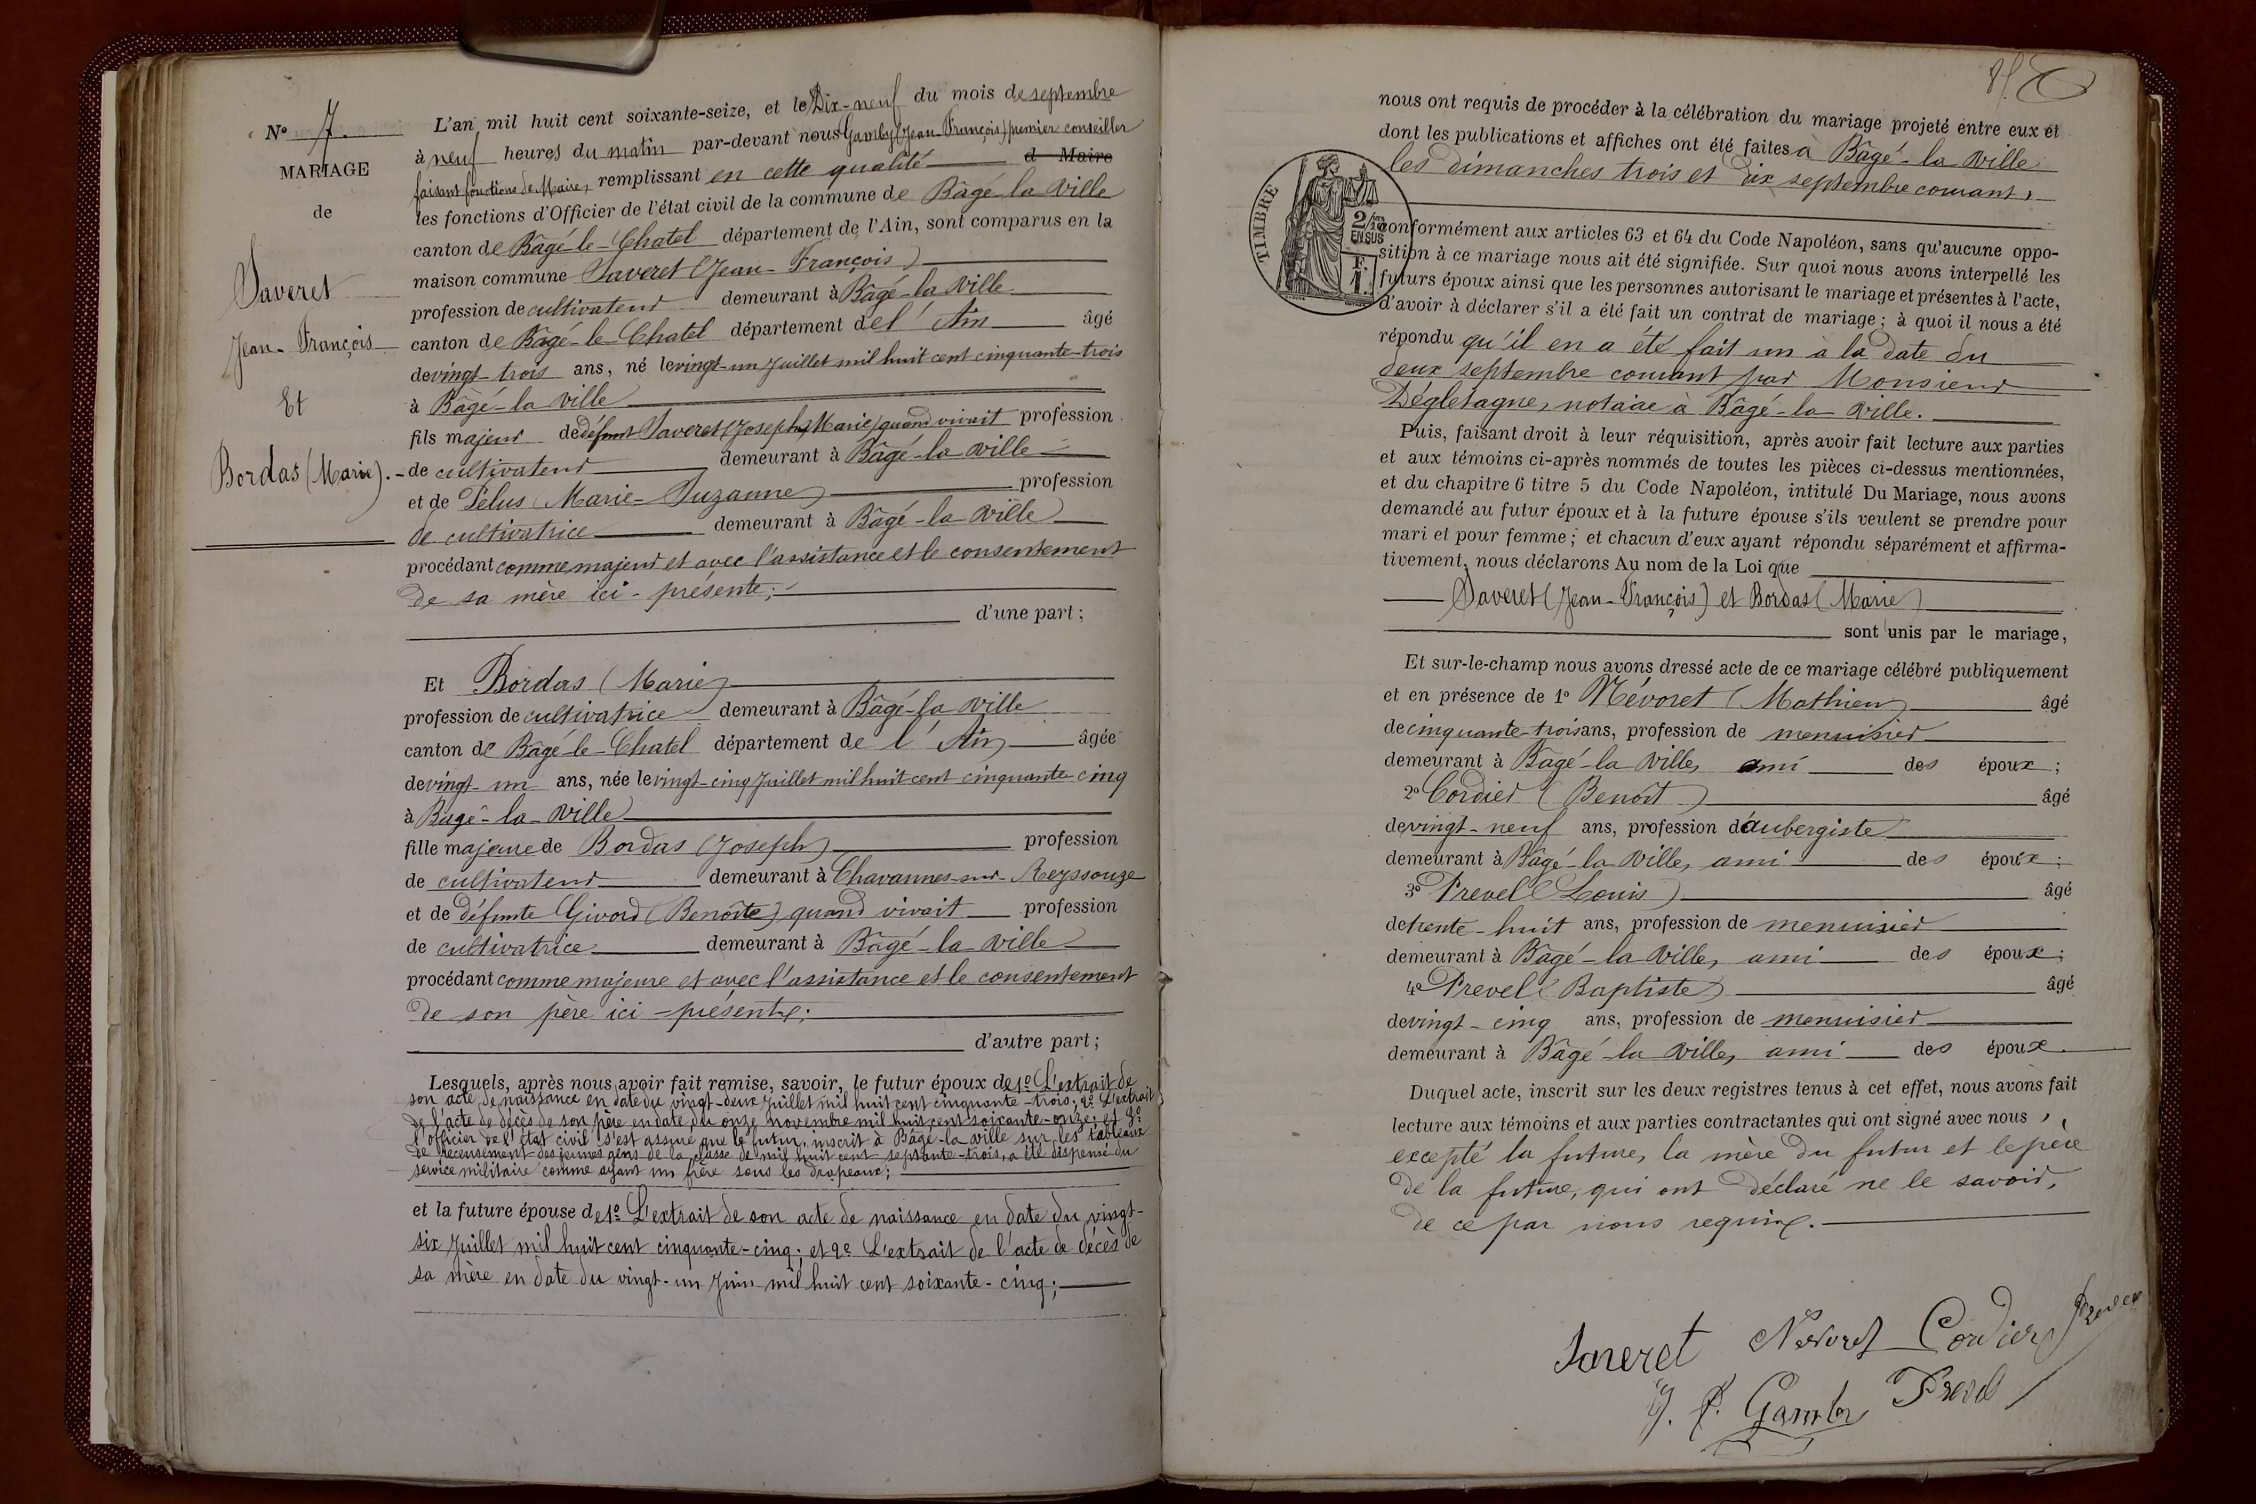 N° 7.
MARIAGE
de
Saveret
Jean-François
Et
Bordas (Marie).
L'an mil huit cent soixante-seize, et le Dix-neuf du mois de septembre
à neuf heures du matin par-devant nous Gamby (Jean-François) premier conseiller
faisant fonctions de Maire, remplissant en cette qualité d Maire
les fonctions d'Officier de l'état civil de la commune de Bâgé-la-Ville
canton de Bâgé-le-Chatel département de l'Ain, sont comparus en la
maison commune Saveret (Jean-François)
profession de cultivateur demeurant à Bâgé-la-Ville
canton de Bâgé-le-Chatel département de l'Ain âgé
de vingt-trois ans, né le vingt-un Juillet mil huit cent cinquante-trois
à Bâgé-la-Ville
fils majeur de défunt Saveret (Joseph Marie) quand vivait profession
de cultivateur demeurant à Bâgé-la-Ville
et de Pélus (Marie-Suzanne) profession
de cultivatrice demeurant à Bâgé-la-Ville
procédant comme majeur et avec l'assistance et le consentement
de sa mère ici-présente;
d'une part;
Et Bordas (Marie)
profession de cultivatrice demeurant à Bâgé-la-Ville
canton de Bâgé-le-Chatel département de l'Ain âgée
de vingt-un ans, née le vingt-cinq Juillet mil huit cent cinquante-cinq
à Bâgé-la-Ville
fille majeure de Bordas (Joseph) profession
de cultivateur demeurant à Chavannes-sur-Reyssouze
et de défunte Givord (Benoîte) quand vivait profession
de cultivatrice demeurant à Bâgé-la-Ville
procédant comme majeure et avec l'assistance et le consentement
de son père ici-présent;
d'autre part;
Lesquels, après nous avoir fait remise, savoir, le futur époux de 1° L'extrait de
son acte de naissance en date du vingt-deux Juillet mil huit cent cinquante-trois; 2° L'extrait
de l'acte de décès de son père en date du onze novembre mil huit cent soixante-onze; et 3°
l'officier de l'état civil s'est assuré que le futur, inscrit à Bâgé-la-Ville sur les tableaux
de recensement des jeunes gens de la classe de mil huit cent septante-trois, a été dispensé du
service militaire comme ayant un frère sous les drapeaux;
et la future épouse de 1° L'extrait de son acte de naissance en date du vingt-
six Juillet mil huit cent cinquante-cinq; et 2° L'extrait de l'acte de décès de
sa mère en date du vingt-un Juin mil huit cent soixante-cinq;
TIMBRE
2/10mes
EN SUS
F.
1.
nous ont requis de procéder à la célébration du mariage projeté entre eux et
dont les publications et affiches ont été faites à Bâgé-la-Ville
les dimanches trois et dix septembre courant,
conformément aux articles 63 et 64 du Code Napoléon, sans qu'aucune oppo-
sition à ce mariage nous ait été signifiée. Sur quoi nous avons interpellé les
futurs époux ainsi que les personnes autorisant le mariage et présentes à l'acte,
d'avoir à déclarer s'il a été fait un contrat de mariage; à quoi il nous a été
répondu qu'il en a été fait un à la date du
deux septembre courant par Monsieur
Dégletagne, notaire à Bâgé-la-Ville.
Puis, faisant droit à leur réquisition, après avoir fait lecture aux parties
et aux témoins ci-après nommés de toutes les pièces ci-dessus mentionnées,
et du chapitre 6 titre 5 du Code Napoléon, intitulé Du Mariage, nous avons
demandé au futur époux et à la future épouse s'ils veulent se prendre pour
mari et pour femme; et chacun d'eux ayant répondu séparément et affirma-
tivement, nous déclarons Au nom de la Loi que
Saveret (Jean-François) et Bordas (Marie)
sont unis par le mariage,
Et sur-le-champ nous avons dressé acte de ce mariage célébré publiquement
et en présence de 1° Névoret (Mathieu) âgé
de cinquante-trois ans, profession de menuisier
demeurant à Bâgé-la-Ville, ami des époux;
2° Cordier (Benoît) âgé
de vingt-neuf ans, profession d'aubergiste
demeurant à Bâgé-la-Ville, ami des époux;
3° Prevel (Louis) âgé
de trente-huit ans, profession de menuisier
demeurant à Bâgé-la-Ville, ami des époux;
4° Prevel (Baptiste) âgé
de vingt-cinq ans, profession de menuisier
demeurant à Bâgé-la-Ville, ami des époux
Duquel acte, inscrit sur les deux registres tenus à cet effet, nous avons fait
lecture aux témoins et aux parties contractantes qui ont signé avec nous,
excepté la future, la mère du futur et le père
de la future, qui ont déclaré ne le savoir,
de ce par nous requis.
Saveret Nevoret Cordier Prevel
J. F. Gamby Prevel